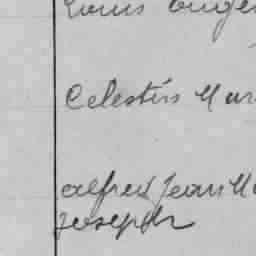 Louis Euge
Celestin Mar
Alfred Jean M
Joseph